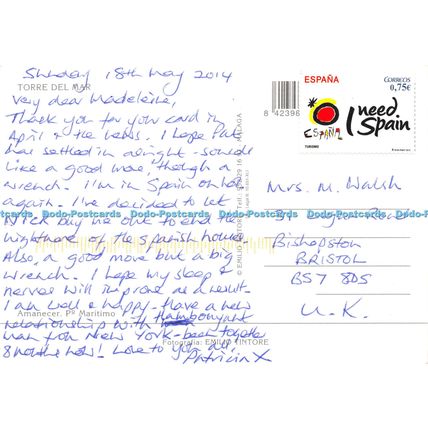 Sunday 18th May 2014
TORRE DEL MAR
Very dear Madeleine,
Thank you for your card in
April & the news. I hope Pat
has settled in alright - sounds
like a good move, though a
wrench. I'm in Spain on hol
again. I've decided to let
Nick buy me out to end the
nightmare of the Spanish house.
Also, a good move but a big
wrench. I hope my sleep &
nerves will improve as a result.
I am well & happy - have a new
Amanecer. Pº Marítimo
relationship with flamboyant
man from New York - been together
8 months now! Love to you all,
Patricia X
Fotografía: EMILIO TINTORE
© EMILIO TINTORE
MALAGA
8 42396
ESPAÑA
CORREOS
0,75€
I need Spain
ESPAÑA
TURISMO
Mrs. M. Walsh
Bishopston
BRISTOL
BS7 8DS
U.K.
Dodo-Postcards Dodo-Postcards Dodo-Postcards Dodo-Postcards